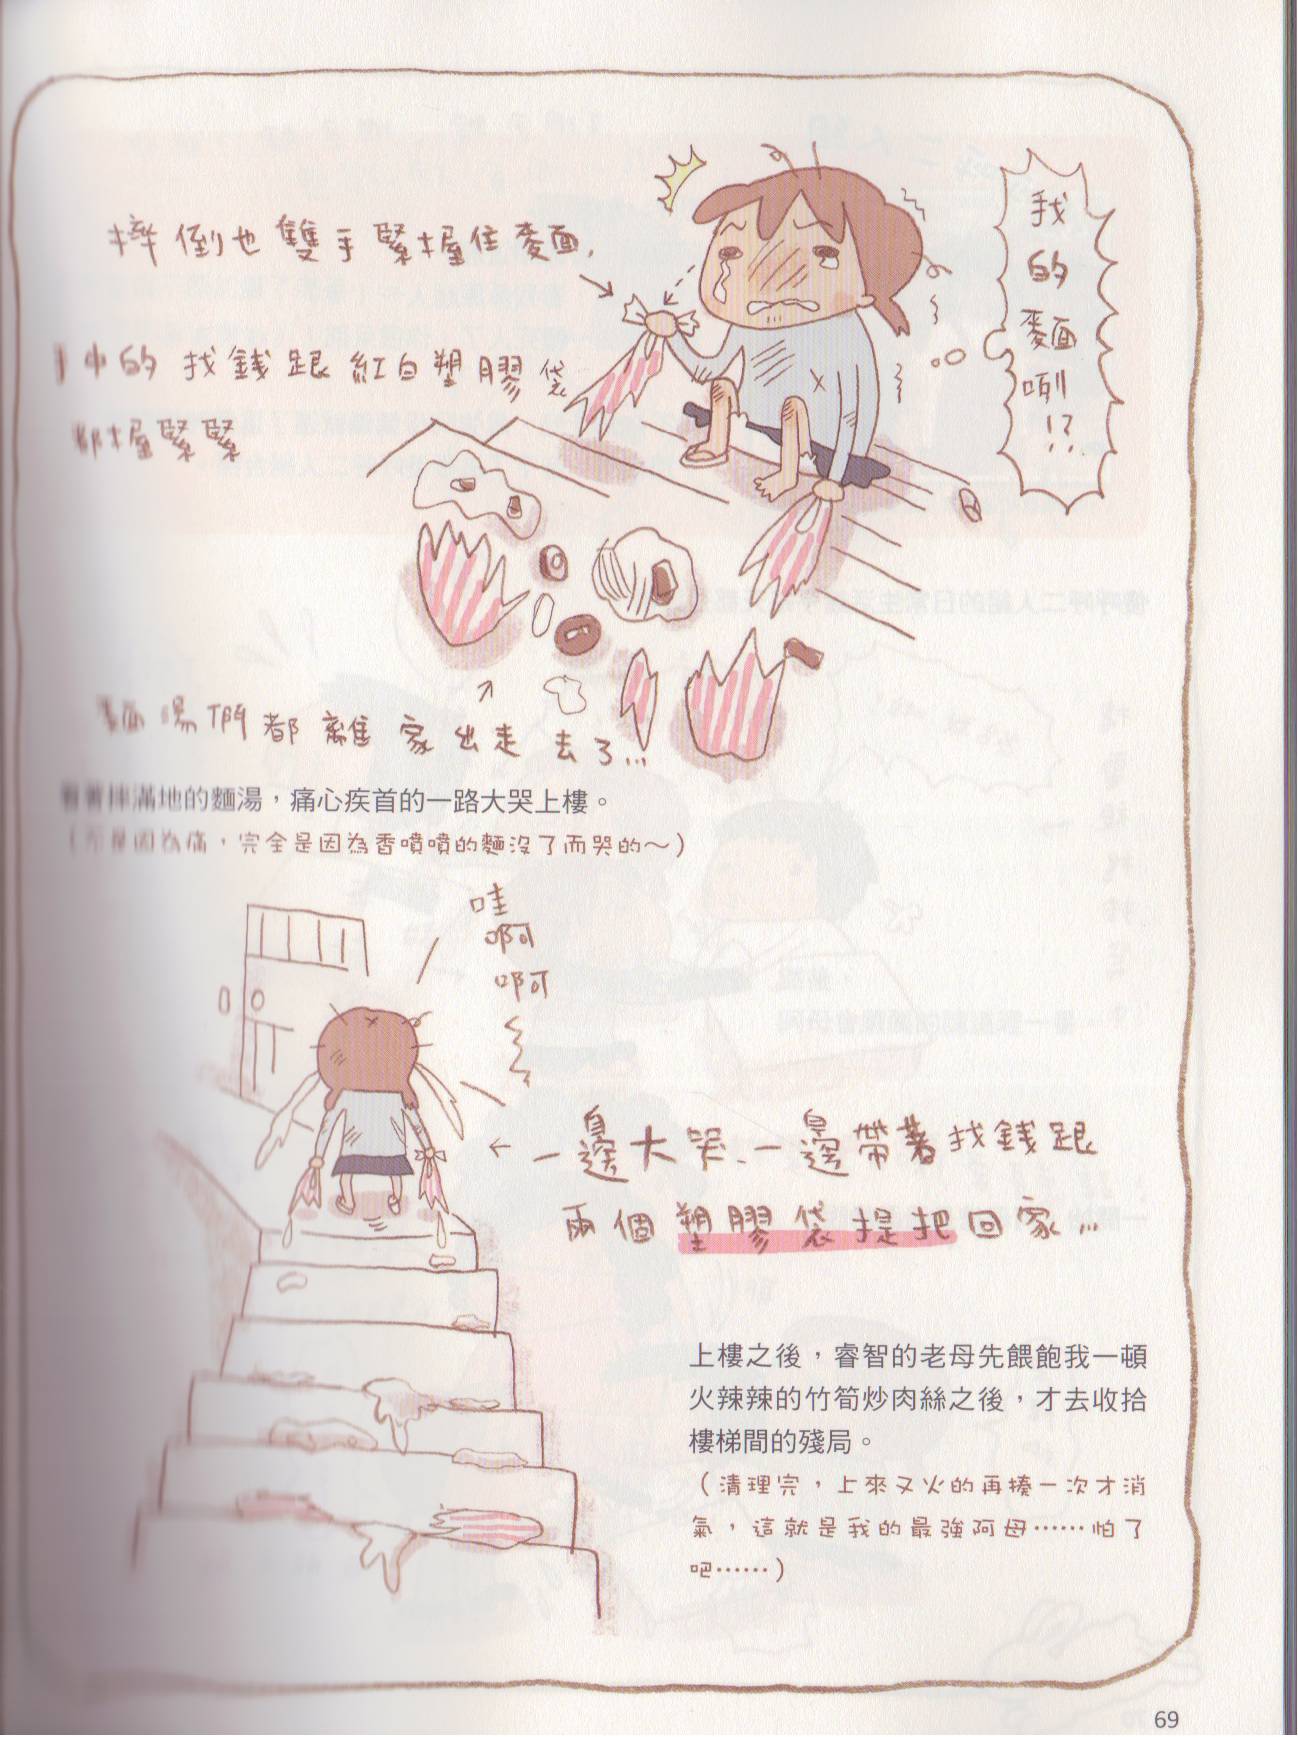 摔倒也雙手緊握住麵,
手中的找錢跟紅白塑膠袋
都握緊緊
我的麵咧!?
麵湯們都離家出走去了...
看著摔滿地的麵湯，痛心疾首的一路大哭上樓。
（不是因為痛，完全是因為香噴噴的麵沒了而哭的～）
哇
啊
啊
一邊大哭、一邊帶著找錢跟
兩個塑膠袋提把回家...
上樓之後，睿智的老母先餵飽我一頓
火辣辣的竹筍炒肉絲之後，才去收拾
樓梯間的殘局。
（清理完，上來又火的再揍一次才消
氣，這就是我的最強阿母⋯⋯怕了
吧⋯⋯）
69